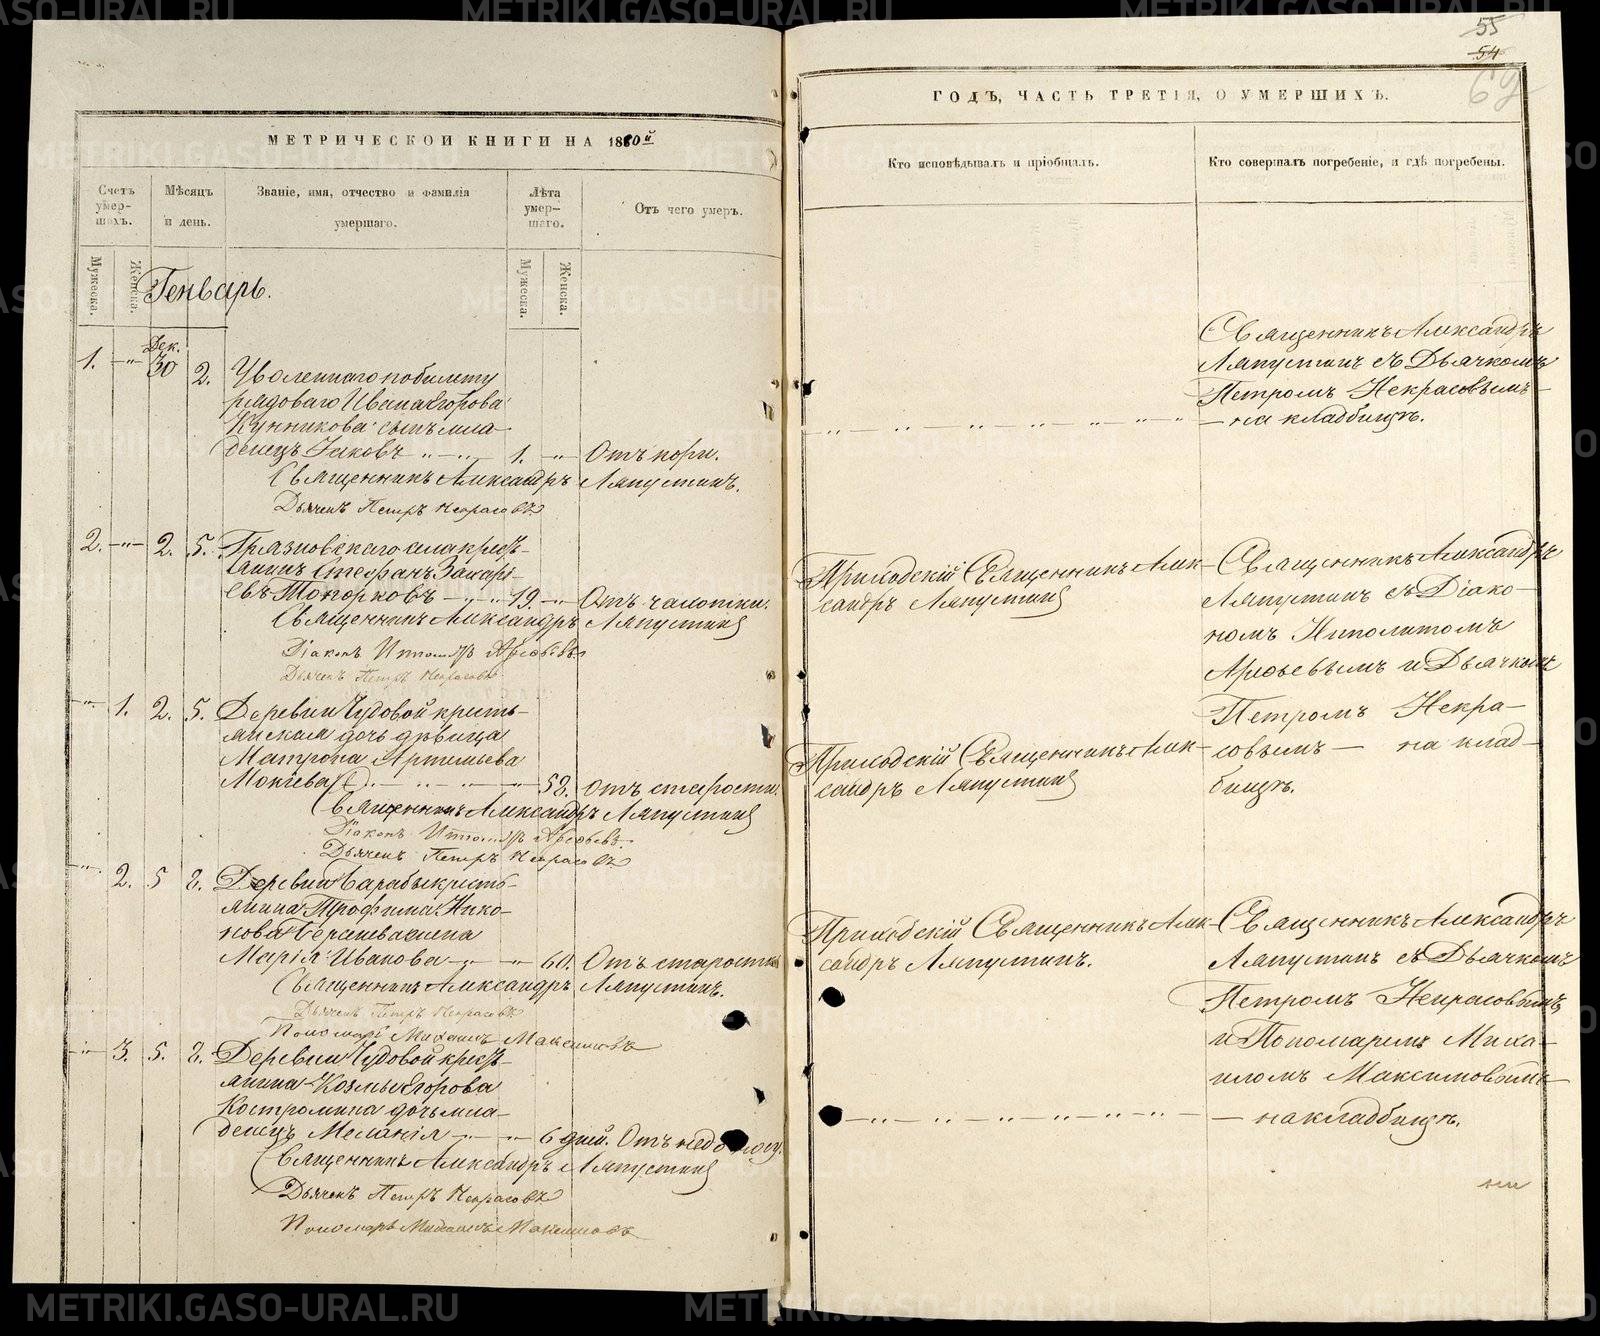 МЕТРИЧЕСКОЙ КНИГИ НА 1880й
Счетъ умер-шихъ.
Мѣсяцъ и день.
Званіе, имя, отчество и фамилія умершаго.
Лѣта умер-шаго.
Отъ чего умеръ.
Мужеска.
Женска.
Мужеска.
Женска.
Генварь.
Дек.
1. -"- 30 2. Уволеннаго по билету
рядоваго Ивана Егорова
Кунникова сынъ мла-
денецъ Іаковъ -"- 1. -"- Отъ кори.
Священникъ Александръ Ляпустинъ.
Дьячекъ Петръ Некрасовъ
2. -"- 2. 5. Грязновскаго села кресть-
янинъ Стефанъ Захарі-
евъ Топорковъ -"- 19. -"- Отъ чахотки.
Священникъ Александръ Ляпустинъ
Діаконъ Ипполитъ Арефьевъ
Дьячекъ Петръ Некрасовъ
-"- 1. 2. 5. Деревни Чудовой кресть-
янская дочь дѣвица
Матрона Артемьева
Мокѣева -"- 58. Отъ старости.
Священникъ Александръ Ляпустинъ
Діаконъ Ипполитъ Арефьевъ
Дьячекъ Петръ Некрасовъ
-"- 2. 5 8. Деревни Барабы кресть-
янина Трофима Нико-
нова жена
Марія Иванова -"- 60. Отъ старости
Священникъ Александръ Ляпустинъ.
Дьячекъ Петръ Некрасовъ
Пономарь Михаилъ Максимовъ
-"- 3. 5. 8. Деревни Чудовой кресть-
янина Козмы Егорова
Костромина дочь мла-
денецъ Меланія -"- 6 дней. Отъ
Священникъ Александръ Ляпустинъ
Дьячекъ Петръ Некрасовъ
Пономарь Михаилъ Максимовъ
55
54
62
ГОДЪ, ЧАСТЬ ТРЕТІЯ, О УМЕРШИХЪ.
Кто исповѣдывалъ и пріобщалъ.
Кто совершалъ погребеніе, и гдѣ погребены.
Священникъ Александръ
Ляпустинъ съ Дьячкомъ
Петромъ Некрасовымъ
— на кладбищѣ.
Приходскій Священникъ Алек-
сандръ Ляпустинъ
Священникъ Александръ
Ляпустинъ съ Діако-
номъ Ипполитомъ
Арефьевымъ и Дьячкомъ
Петромъ Некра-
совымъ — на клад-
бищѣ.
Приходскій Священникъ Алек-
сандръ Ляпустинъ
Приходскій Священникъ Алек-
сандръ Ляпустинъ.
Священникъ Александръ
Ляпустинъ съ Дьячкомъ
Петромъ Некрасовымъ
и Пономаремъ Миха-
иломъ Максимовымъ
— на кладбищѣ.
METRIKI.GASO-URAL.RU